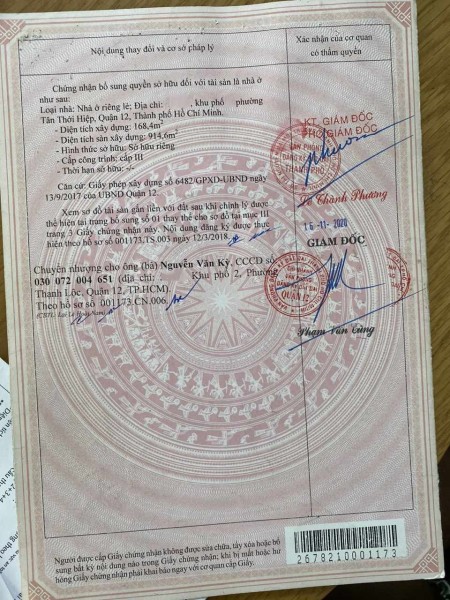 Nội dung thay đổi và cơ sở pháp lý
Xác nhận của cơ quan
có thẩm quyền
Chứng nhận bổ sung quyền sở hữu đối với tài sản là nhà ở
như sau:
Loại nhà: Nhà ở riêng lẻ; Địa chỉ: , khu phố phường
Tân Thới Hiệp, Quận 12, Thành phố Hồ Chí Minh.
- Diện tích xây dựng: 168,4m²
- Diện tích sàn xây dựng: 914,6m²
- Hình thức sở hữu: Sở hữu riêng
- Cấp công trình: cấp III
- Thời hạn sở hữu: -/-
Căn cứ: Giấy phép xây dựng số 6482/GPXD-UBND ngày
13/9/2017 của UBND Quận 12.
Xem sơ đồ tài sản gắn liền với đất sau khi chỉnh lý được
thể hiện tại trang bổ sung số 01 thay thế cho sơ đồ tại mục III
trang 3 Giấy chứng nhận này. Nội dung đăng ký được thực
hiện theo hồ sơ số 001173.TS.003 ngày 12/3/2018.
KT. GIÁM ĐỐC
PHÓ GIÁM ĐỐC
VĂN PHÒNG
ĐĂNG KÝ
THÀNH PHỐ
Thành Phương
Chuyển nhượng cho ông (bà) Nguyễn Văn Ký, CCCD số
030 072 004 651 (địa chỉ: Khu phố 2, Phường
Thạnh Lộc, Quận 12, TP.HCM)
Theo hồ sơ số 001173.CN.006.
16 -11- 2020
GIÁM ĐỐC
QUẬN 12
Phạm Văn Cùng
Người được cấp Giấy chứng nhận không được sửa chữa, tẩy xóa hoặc bổ
sung bất kỳ nội dung nào trong Giấy chứng nhận; khi bị mất hoặc hư
hỏng Giấy chứng nhận phải khai báo ngay với cơ quan cấp Giấy.
2678210001173